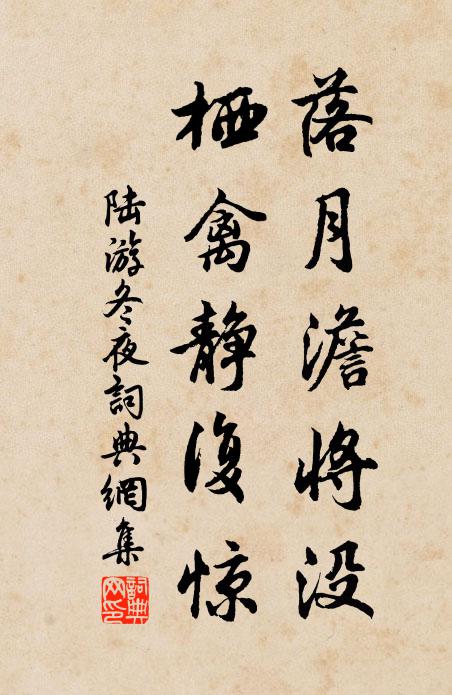 落月澹将没
栖禽静復惊
陆游冬夜詞典網集
詞典網印